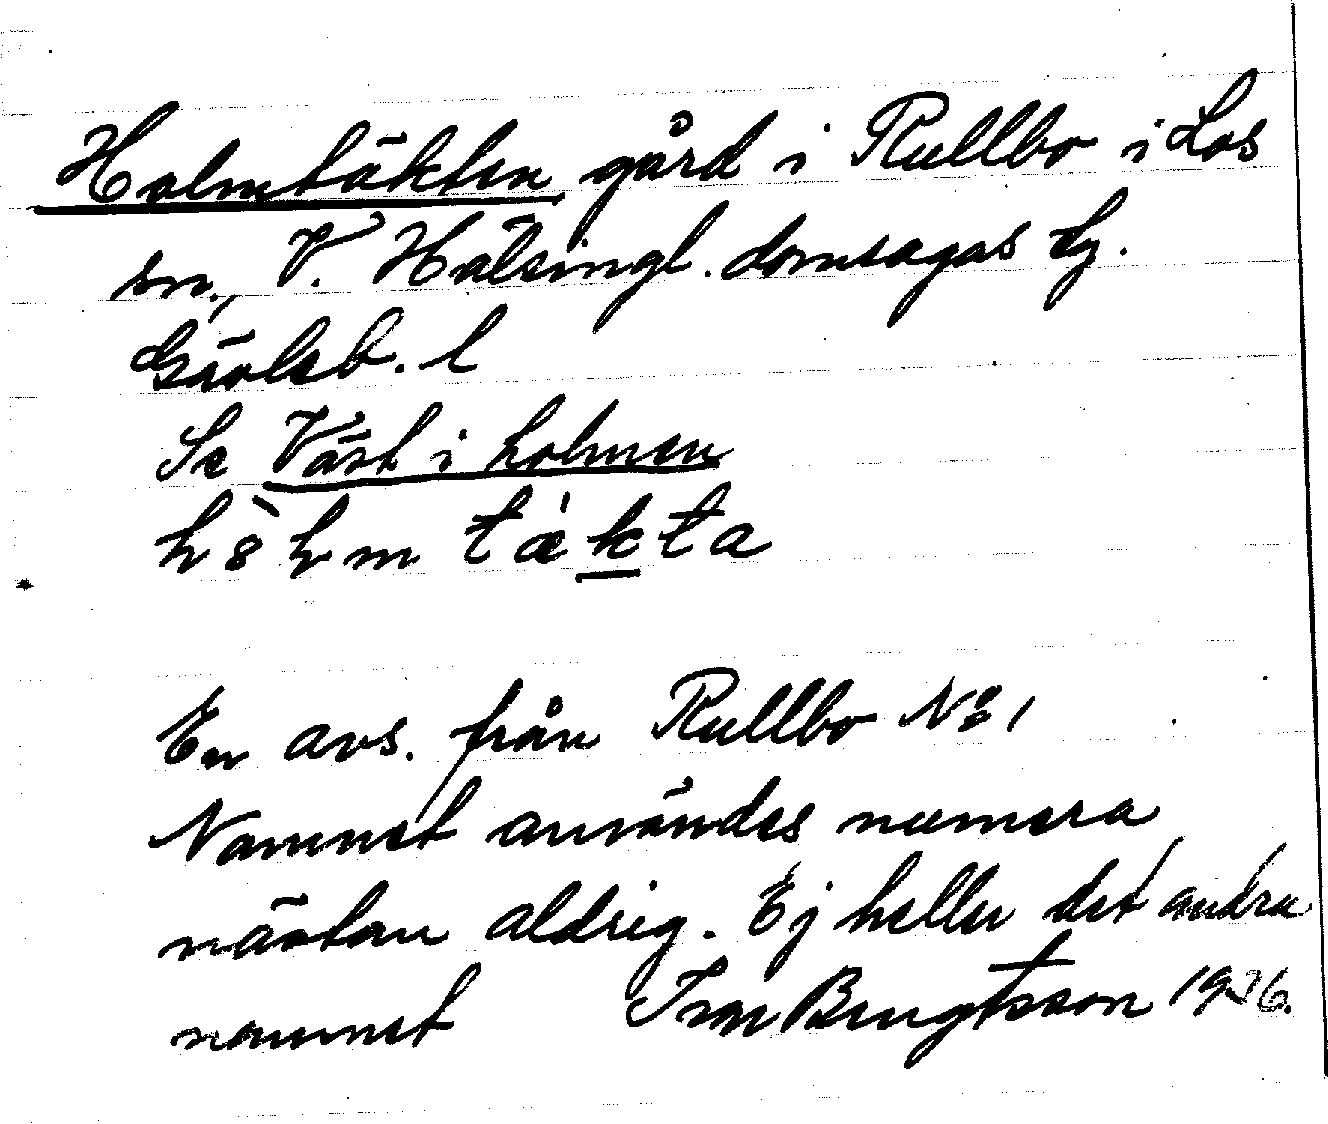 Holmtäkten gård i Rullbo i Los
sn., V. Hälsingl. domsagas tg.
Gävleb. l
Se Väst i holmen
h ò h m t æ̀ k t a
En avs. från Rullbo No 1
Namnet användes numera
nästan aldrig. Ej heller det andra
namnet Ivar Bengtsson 1936.